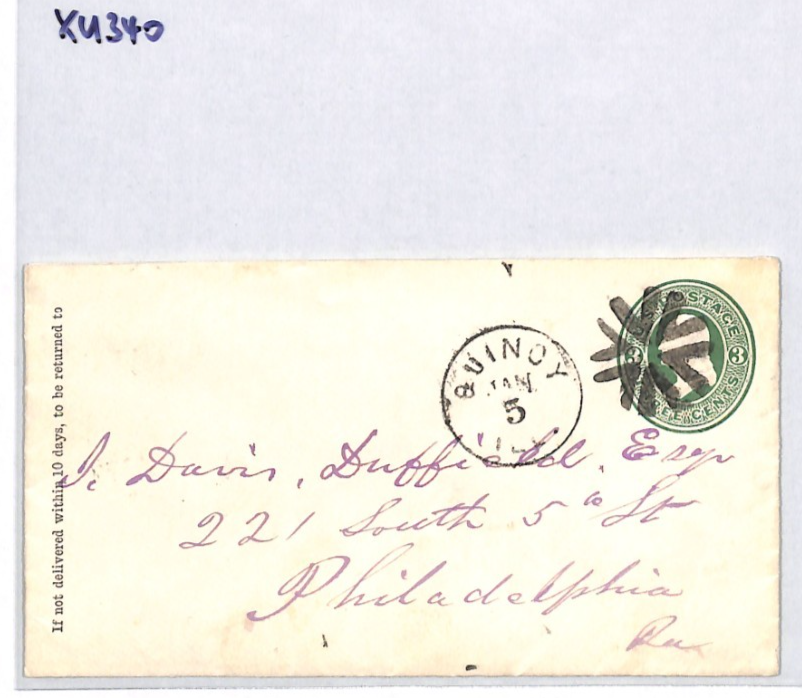 XU340
U.S. POSTAGE
3 3
THREE CENTS
QUINCY
JAN
5
If not delivered within 10 days, to be returned to
Davis, Duffield, Esqr
221 South 5th St
Philadelphia
Pa